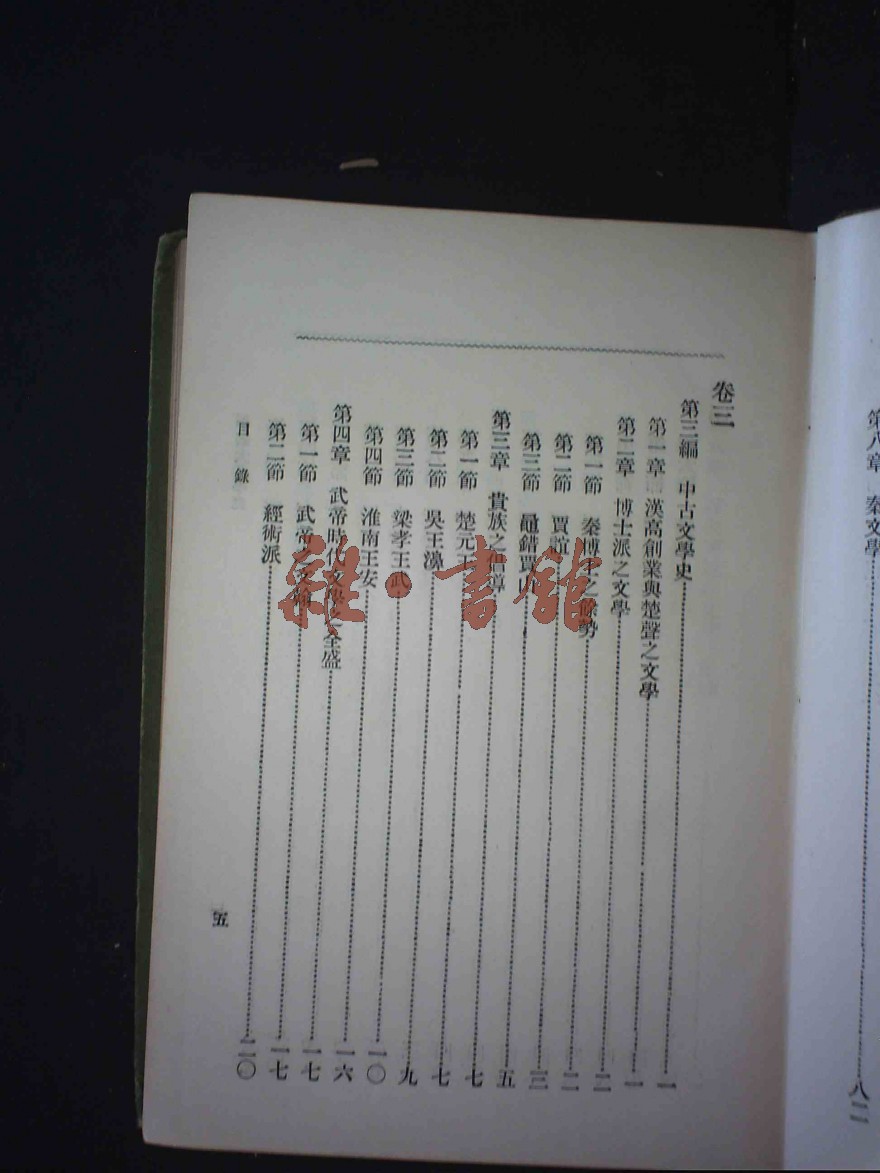 第八章 秦文學……八二
卷三
第三編 中古文學史……一
第一章 漢高創業與楚聲之文學……一
第二章 博士派之文學……二
第一節 秦博士之餘勢……二
第二節 賈誼……三
第三節 鼂錯賈山……五
第三章 貴族之倡導……七
第一節 楚元王……七
第二節 吳王濞……九
第三節 梁孝王武……一〇
第四節 淮南王安……一六
第四章 武帝時代文學之全盛……一七
第一節 武帝之文……一七
第二節 經術派……二〇
目錄
五
雜·書館